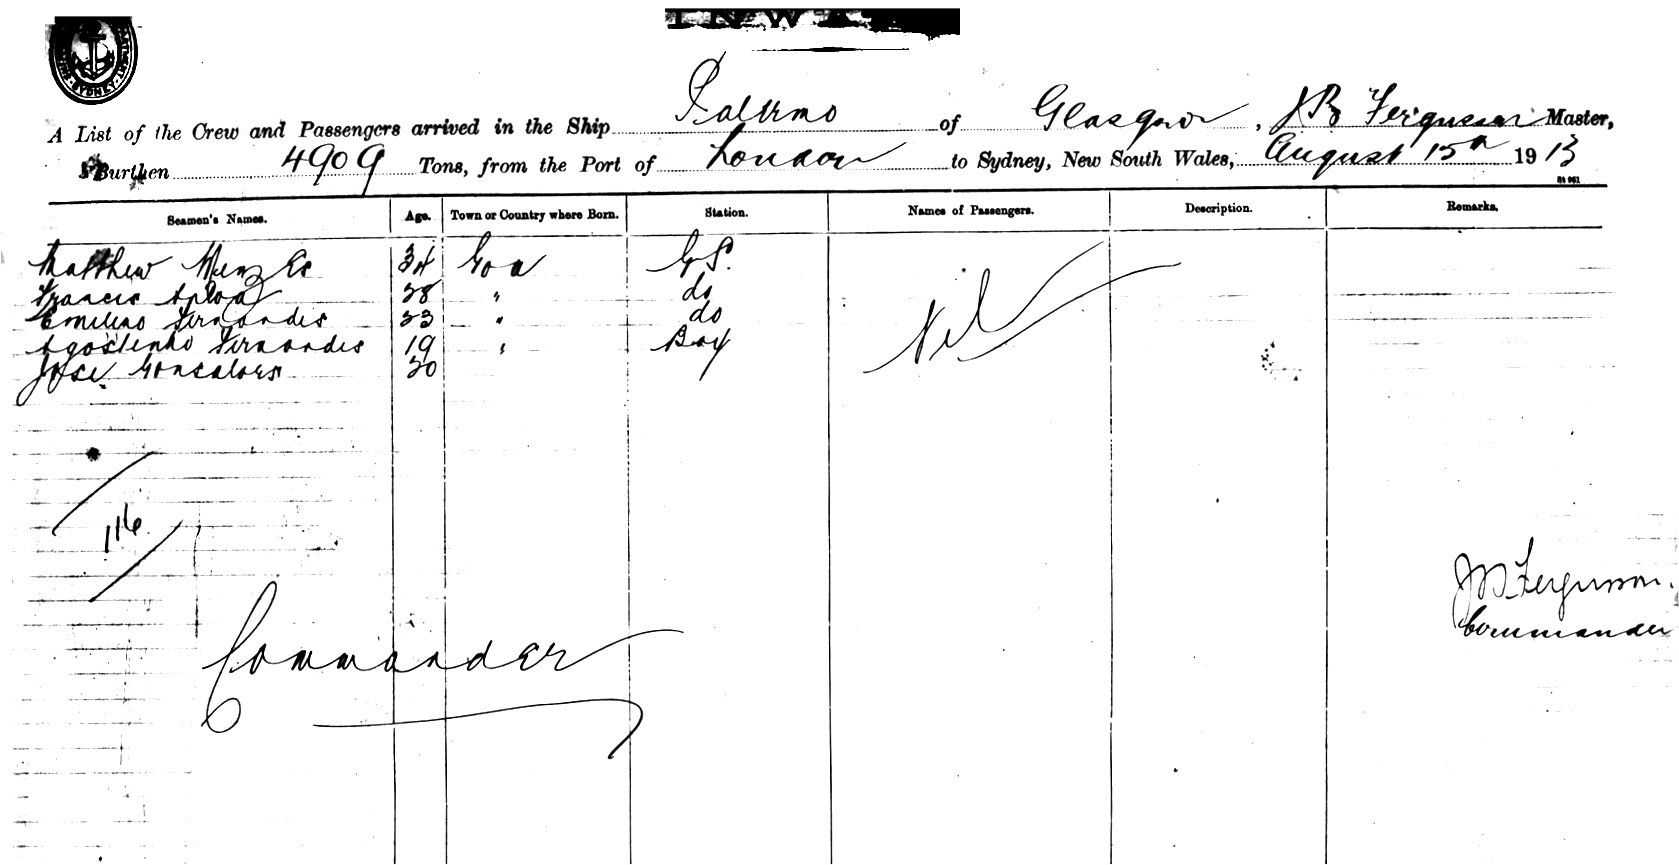 SYDNEY
A List of the Crew and Passengers arrived in the Ship Palermo of Glasgow, J B Ferguson Master,
Burthen 4909 Tons, from the Port of London to Sydney, New South Wales, August 15th 1913
Seamen's Names. Age. Town or Country where Born. Station. Names of Passengers. Description. Remarks.
Matthew 34 Goa G.S. Nil
Francis 28 " do
Emilino Fernandes 23 " do
Agostinho Fernandes 19 " Boy
Jose Gonsalves 20
116
JB Ferguson.
Commander
Commander